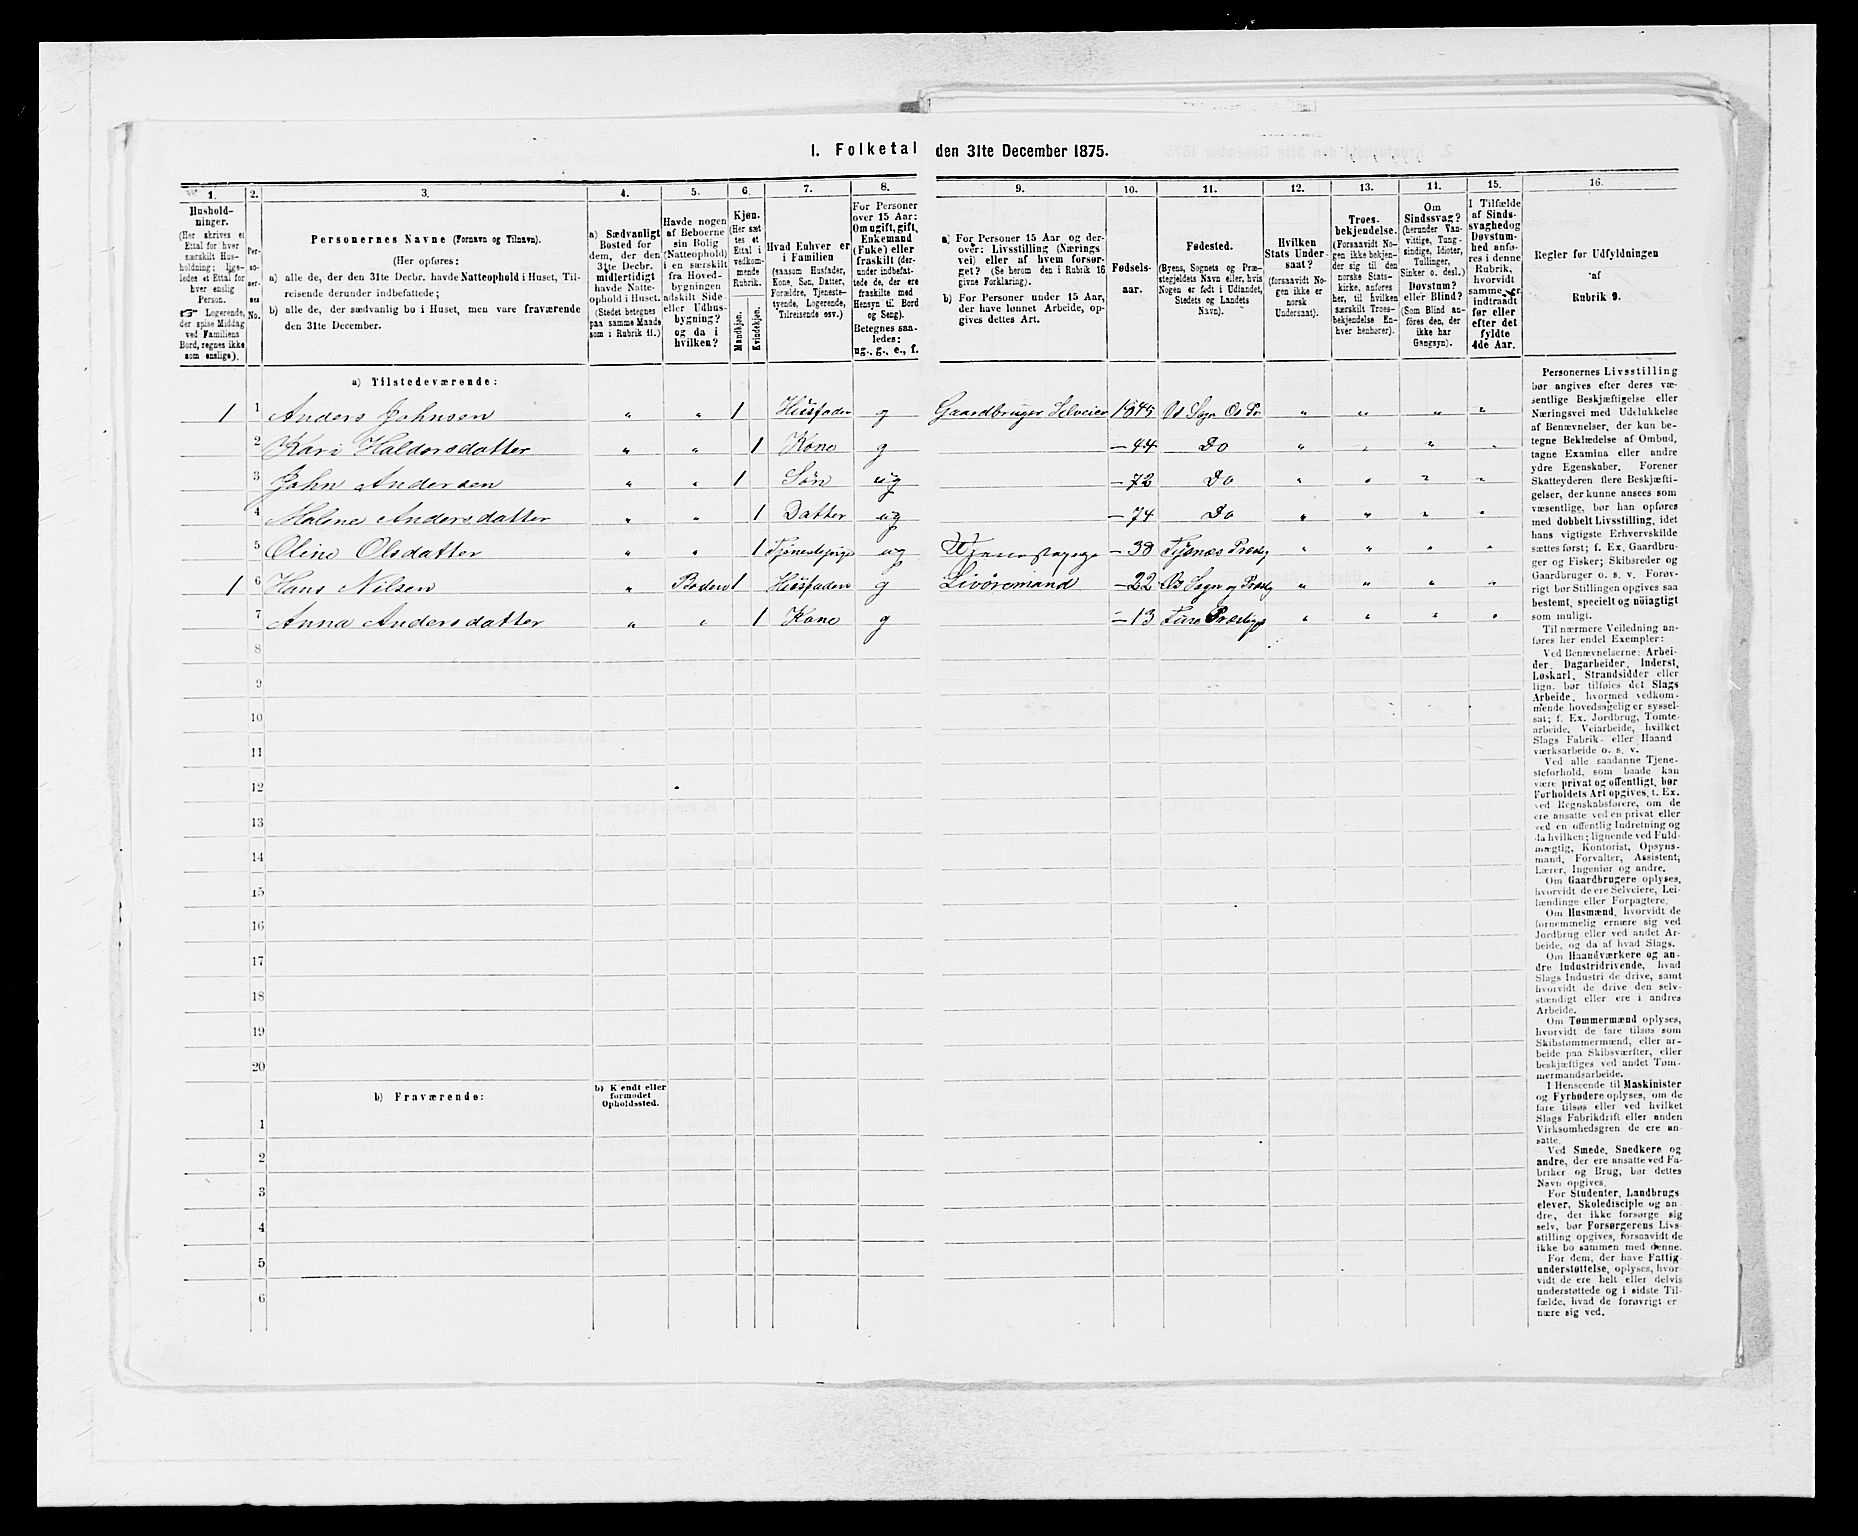 1. Folketal den 31te December 1875.
1. 2. 3. 4. 5. 6. 7. 8. 9. 10. 11. 12. 13. 11. 15. 16.
Hushold-
ninger.
(Her skrives et
Ettal for hver
særskilt Hus-
holdning; lige-
ledes et Ettal for
hver enslig
Person.
☞ Logerende,
der spise Middag
ved Familiens
Bord, regnes ikke
som enslige).
Per-
so-
ner-
nes
No.
Personernes Navne (Fornavn og Tilnavn).
(Her opføres:
a) alle de, der den 31te Decbr. havde Natteophold i Huset, Til-
reisende derunder indbefattede;
b) alle de, der sædvanlig bo i Huset, men vare fraværende
den 31te December.
a) Sædvanligt
Bosted for
dem, der den
31te Decbr.
midlertidigt
havde Natte-
ophold i Huset.
(Stedet betegnes
paa samme Maade
som i Rubrik 11.)
Havde nogen
af Beboerne
sin Bolig
(Natteophold)
i en særskilt
fra Hoved-
bygningen
adskilt Side-
eller Udhus-
bygning?
og da i
hvilken?
Kjøn.
(Her sæt
tes et
Ettal i
vedkom-
mende
Rubrik.
Mandkjøn.
Kvindekjøn.
Hvad Enhver er
i Familien
(saasom Husfader,
Kone, Søn, Datter,
Forældre, Tjeneste-
tyende, Logerende,
Tilreisende osv.)
For Personer
over 15 Aar:
Om ugift, gift,
Enkemand
(Enke) eller
fraskilt (der-
under indbefat-
tede de, der ere
fraskilte med
Hensyn til Bord
og Seng).
Betegnes saa-
ledes:
ug., g., e., f.
a) For Personer 15 Aar og der-
over: Livsstilling (Nærings
vei) eller af hvem forsør-
get? (Se herom den i Rubrik 16
givne Forklaring).
b) For Personer under 15 Aar,
der have lønnet Arbeide, op-
gives dettes Art.
Fødsels-
aar.
Fødested.
(Byens, Sognets og Præ-
stegjeldets Navn eller, hvis
Nogen er født i Udlandet,
Stedets og Landets
Navn).
Hvilken
Stats Under-
saat?
(forsaavidt No-
gen ikke er
norsk
Undersaat).
Troes-
bekjendelse.
(Forsaavidt No-
gen ikke bekjen-
der sig til den
norske Stats-
kirke, anføres
her, til hvilken
særskilt Troes-
bekjendelse En-
hver henhører).
Om
Sindssvag?
(herunder Van-
vittige, Tung-
sindige, Idioter,
Tullinger,
Sinker o. desl.)
Døvstum?
eller Blind?
(Som Blind an-
føres den, der
ikke har
Gangsyn).
I Tilfælde
af Sinds-
svaghed og
Døvstum-
hed anfø-
res i denne
Rubrik,
hvorvidt
samme er
indtraadt
før eller
efter det
fyldte
4de Aar.
Regler for Udfyldningen
af
Rubrik 9.
a) Tilstedeværende:
1 1 Anders Johnsen " " 1 Husfader g Gaardbruger Selveier 1845 Os Sogn Os Pr " " " "
2 Kari Haldorsdatter " " 1 Kone g — 44 Do " " " "
3 John Andersen " " 1 Søn ug — 72 Do " " " "
4 Malene Andersdatter " " 1 Datter ug — 74 Do " " " "
5 Oline Olsdatter " " 1 Tjenestepige ug Tjenestepige — 38 Tysnæs Præstg " " " "
1 6 Hans Nilsen " Boden 1 Husfaden g Livøremand — 22 Os Sogn og Præstg " " " "
7 Anna Andersdatter " " 1 Kone g — 13 Fuse Præstegj " " " "
8
9
10
11
12
13
14
15
16
17
18
19
20
b) Fraværende:
b) Kjendt eller
formodet
Opholdssted.
1
2
3
4
5
6
Personernes Livsstilling
bør angives efter deres væ-
sentlige Beskjæftigelse eller
Næringsvei med Udelukkelse
af Benævnelser, der kun be-
tegne Beklædelse af Ombud,
tagne Examina eller andre
ydre Egenskaber. Forener
Skatteyderen flere Beskjæfti-
gelser, der kunne ansees som
væsentlige, bør han opføres
med dobbelt Livsstilling, idet
hans vigtigste Erhvervskilde
sættes først; f. Ex. Gaardbru-
ger og Fisker; Skibsreder og
Gaardbruger o. s. v. Forøv-
rigt bør Stillingen opgives saa
bestemt, specielt og nøiagtigt
som muligt.
Til nærmere Veiledning an-
føres her endel Exempler:
Ved Benævnelserne: Arbei-
der, Dagarbeider, Inderst,
Løskarl, Strandsidder eller
lign. bør tilføies det Slags
Arbeide, hvormed vedkom-
mende hovedsagelig er syssel-
sat; f. Ex. Jordbrug, Tomte-
arbeide, Veiarbeide, hvilket
Slags Fabrik- eller Haand-
værksarbeide o. s. v.
Ved alle saadanne Tjene-
steforhold, som baade kan
være privat og offentligt, bør
Forholdets Art opgives, t. Ex.
ved Regnskabsførere, om de
ere ansatte ved en privat eller
ved en offentlig Indretning og
da hvilken; lignende ved Fuld-
mægtig, Kontorist, Opsyns-
mand, Forvalter, Assistent,
Lærer, Ingeniør og andre.
Om Gaardbrugere oplyses,
hvorvidt de ere Selveiere, Lei-
lændinge eller Forpagtere.
Om Husmænd, hvorvidt de
fornemmelig ernære sig ved
Jordbrug eller ved andet Ar-
beide, og da af hvad Slags.
Om Haandværkere og an-
dre Industridrivende, hvad
Slags Industri de drive, samt
hvorvidt de drive den selv-
stændigt eller ere i andres
Arbeide.
Om Tømmermænd oplyses,
hvorvidt de fare tilsøs som
Skibstømmermænd, eller ar-
beide paa Skibsværfter, eller
beskjæftiges ved andet Tøm-
mermandsarbeide.
I Henseende til Maskinister
og Fyrbødere oplyses, om de
fare tilsøs eller ved hvilket
Slags Fabrikdrift eller anden
Virksomhedsgren de ere an-
satte.
Ved Smede, Snedkere og
andre, der ere ansatte ved Fa-
briker og Brug, bør dettes
Navn opgives.
For Studenter, Landbrugs
elever, Skoledisciple og an-
dre, der ikke forsørge sig
selv, bør Forsørgerens Livs-
stilling opgives, forsaavidt de
ikke bo sammen med denne.
For dem, der have Fattig-
understøttelse, oplyses, hvor-
vidt de ere helt eller delvis
understøttede og i sidste Til-
fælde, hvad de forøvrigt er
nære sig ved.